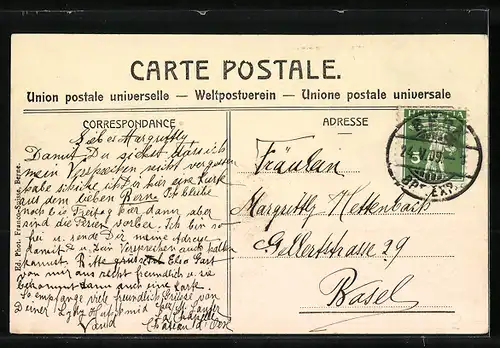 CARTE POSTALE.
Union postale universelle — Weltpostverein — Unione postale universale
CORRESPONDANCE
Liebes Margrittly
Damit Du siehst dass ich
mein Versprechen nicht vergessen
habe schicke ich Dir hier eine Karte
aus dem lieben Bern. Ich bleibe
noch bis Freitag hier dann aber
sind die Ferien vorbei. Ich bin
froh u. sende Dir meine Adresse
damit Du Dein Versprechen auch halten
kannst. Bitte Elsa Gast
von mir aus recht freundlich u. sie
bekommt dann auch eine Karte.
So empfange viele freundliche Grüsse von
Deiner Lyly
La Chapelle
Vaud
ADRESSE
Fräulein
Margrittly Hettenbach
Gellertstrasse 29
Basel
5
09
EXP.
Ed. Phot. Franco-Suisse, Berne.